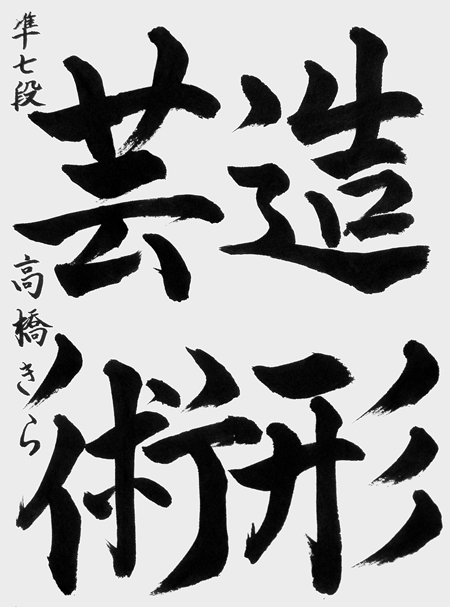 造形
芸術
隼七段
高橋きら